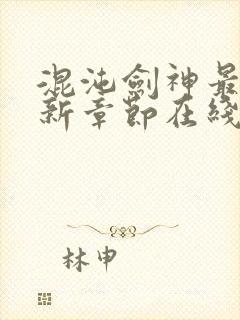 混沌劍神最
新章節在綫
林申